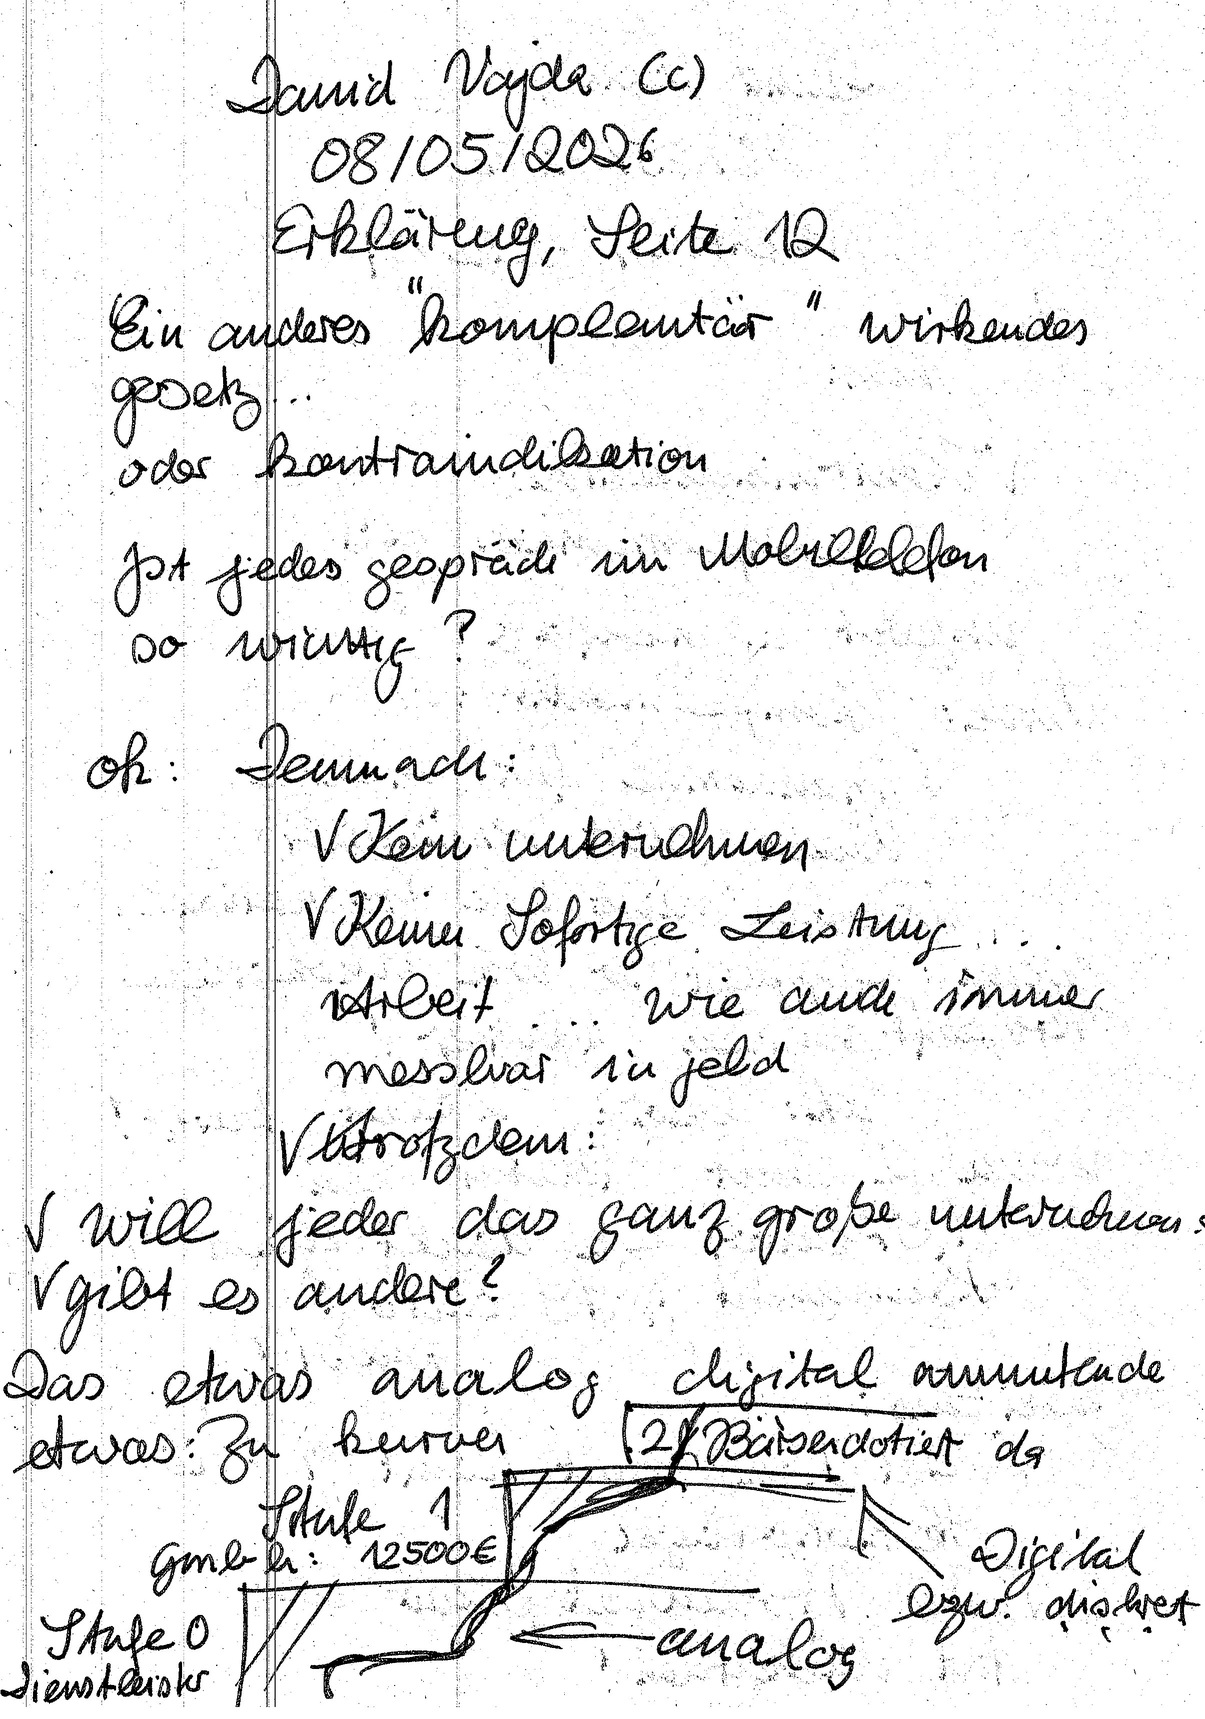 David Vajda (c)
08/05/2026
Erklärung, Seite 12
Ein anderes "komplemtär" wirkendes
gesetz...
oder kontraindikation
Ist jedes gespräch im Mobiltelefon
so wichtig?
ok: Demnach:
√ Kein unternehmen
√ Keine Sofortige Leistung ...
Arbeit ... wie auch immer
messbar in geld
√ trotzdem:
√ will jeder das ganz große unternehmen:
√ gibt es andere?
Das etwas analog digital anmutende
etwas: Zu kurven
2 Börsendotiert da
Stufe 1
Gmbh: 12500€
Digital
bzw. diskret
Stufe 0
Dienstleister
analog